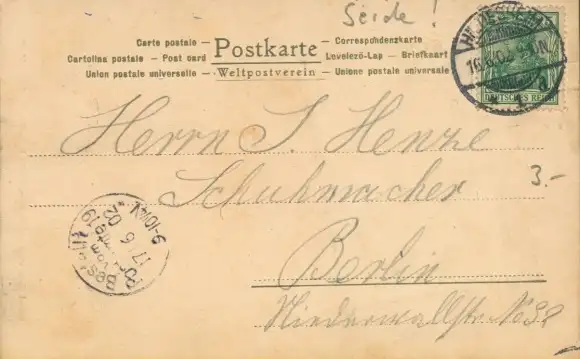 Seide!
Carte postale – Postkarte – Correspondenzkarte
Cartolina postale – Post card – Levelező-Lap – Briefkaart
Union postale universelle – Weltpostverein – Unione postale universale
DEUTSCHES REICH
Herrn J. Henze
Schuhmacher
3.-
Berlin
Niederwallstr. No 32
Bestellt
vom
Postamte 19
17 6
02
9-10¼V